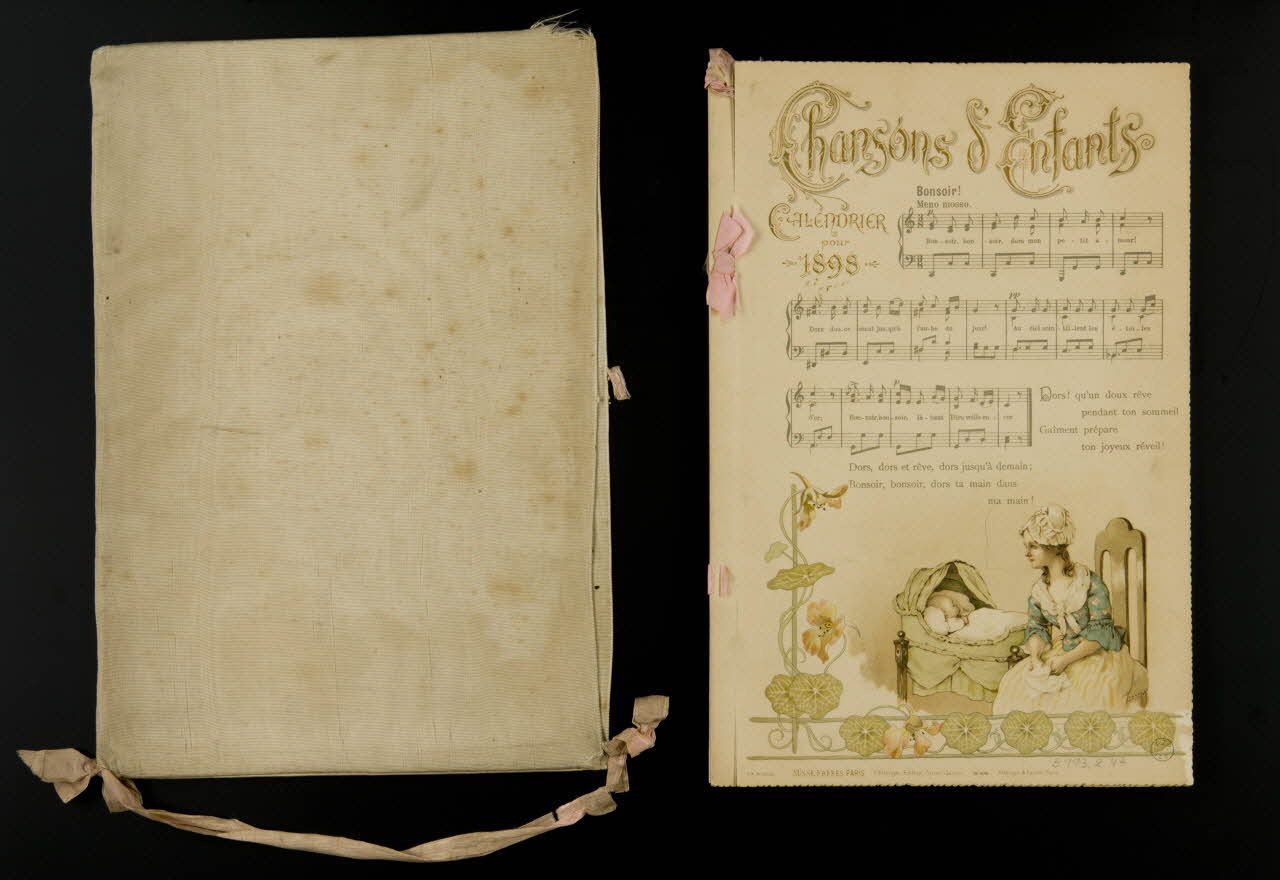 Chansons d'Enfants
Bonsoir!
Meno mosso.
CALENDRIER
pour
1898
Bon-soir, bon-soir, dors mon pe-tit a-mour!
pp
Dors dou-ce-ment jus-qu'à l'au-be du jour! Au ciel scin-til-lent les é-toi-les
d'or; Bon-soir, bon-soir,
Dors! qu'un doux rêve
pendant ton sommeil
Gaîment prépare
ton joyeux réveil!
Dors, dors et rêve, dors jusqu'à demain;
Bonsoir, bonsoir, dors ta main dans
ma main!
SUSSE FRÈRES PARIS